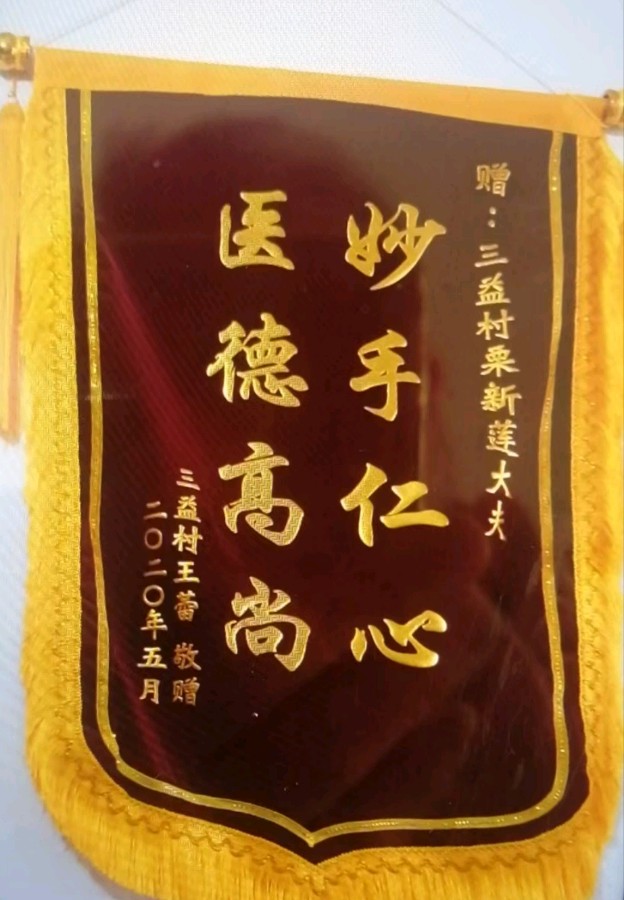 赠：三益村栗新莲大夫
妙手仁心
医德高尚
三益村王蕾 敬赠
二〇二〇年五月